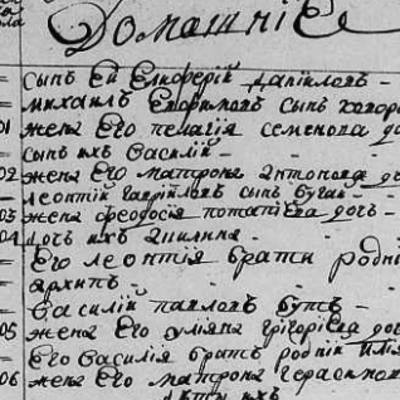 Домашніе
сынъ Ей Елиферій даніиловъ –
михаилъ Ефримовъ сынъ
01 жена Его пелагія семенова до
сынъ ихъ Василій –
02 жена Его матрона Антонова доч
леонтій гаврійловъ сынъ буган –
03 жена феодосія потапіева дочь –
04 дочь ихъ
Его леонтія братъ родні
архипъ –
Василій павловъ бутъ –
05 жена Его уліяна григоріева доч
Его Василія братъ родній Илія
06 жена Его матрона герасимов
дѣти ихъ